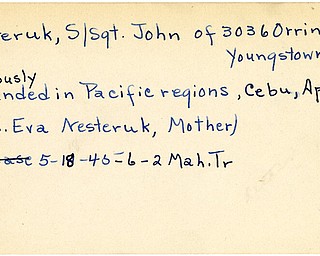 eruk, S/Sgt. John of 3036 Orrin
Youngstown
ously
nded in Pacific regions, Cebu, Ap
. Eva Nesteruk, Mother)
ase 5-18-45-6-2 Mah. Tr